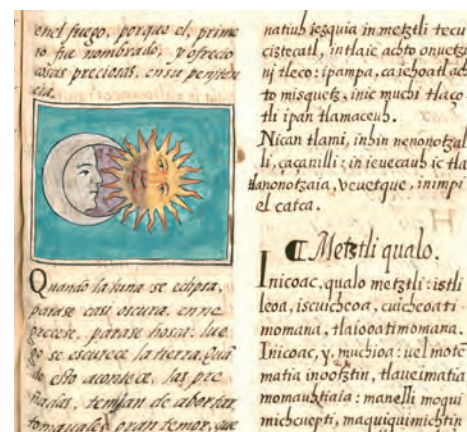 en el fuego, porque el prime
ro fue nombrado, y ofrecio
cosas preciosas, en su peniten
cia.
Quando la luna se eclipsa,
parase casi oscura, enne
grecese, parase hosca: lue
go se escurece la tierra. Quã
do esto acontece, las pre
ñadas, temjan de abortar,
tomauales gran temor, que
natiuh iezquia in metztli tecu
ciztecatl, intlaic achto onuetzi
nj tleco: ipampa, ca iehoatl ach
to misquetz, inic muchi tlaço
tli ipan tlamaceuh.
Nican tlami, inhin nenonotzal
li, çaçanilli: in ieuecauh ic tla
tlanonotzaia, veuetque, inimpi
el catca.
Metztli qualo.
Inicoac, qualo metztli: istli
leoa, iscuicheoa, cuicheoati
momana, tlaiooatimomana.
Inicoac, y, muchioa: uel motẽ
matia inootztin, tlaueimatia
momauhtiaia: manelli moqui
michcuepti, maquiquimichtin